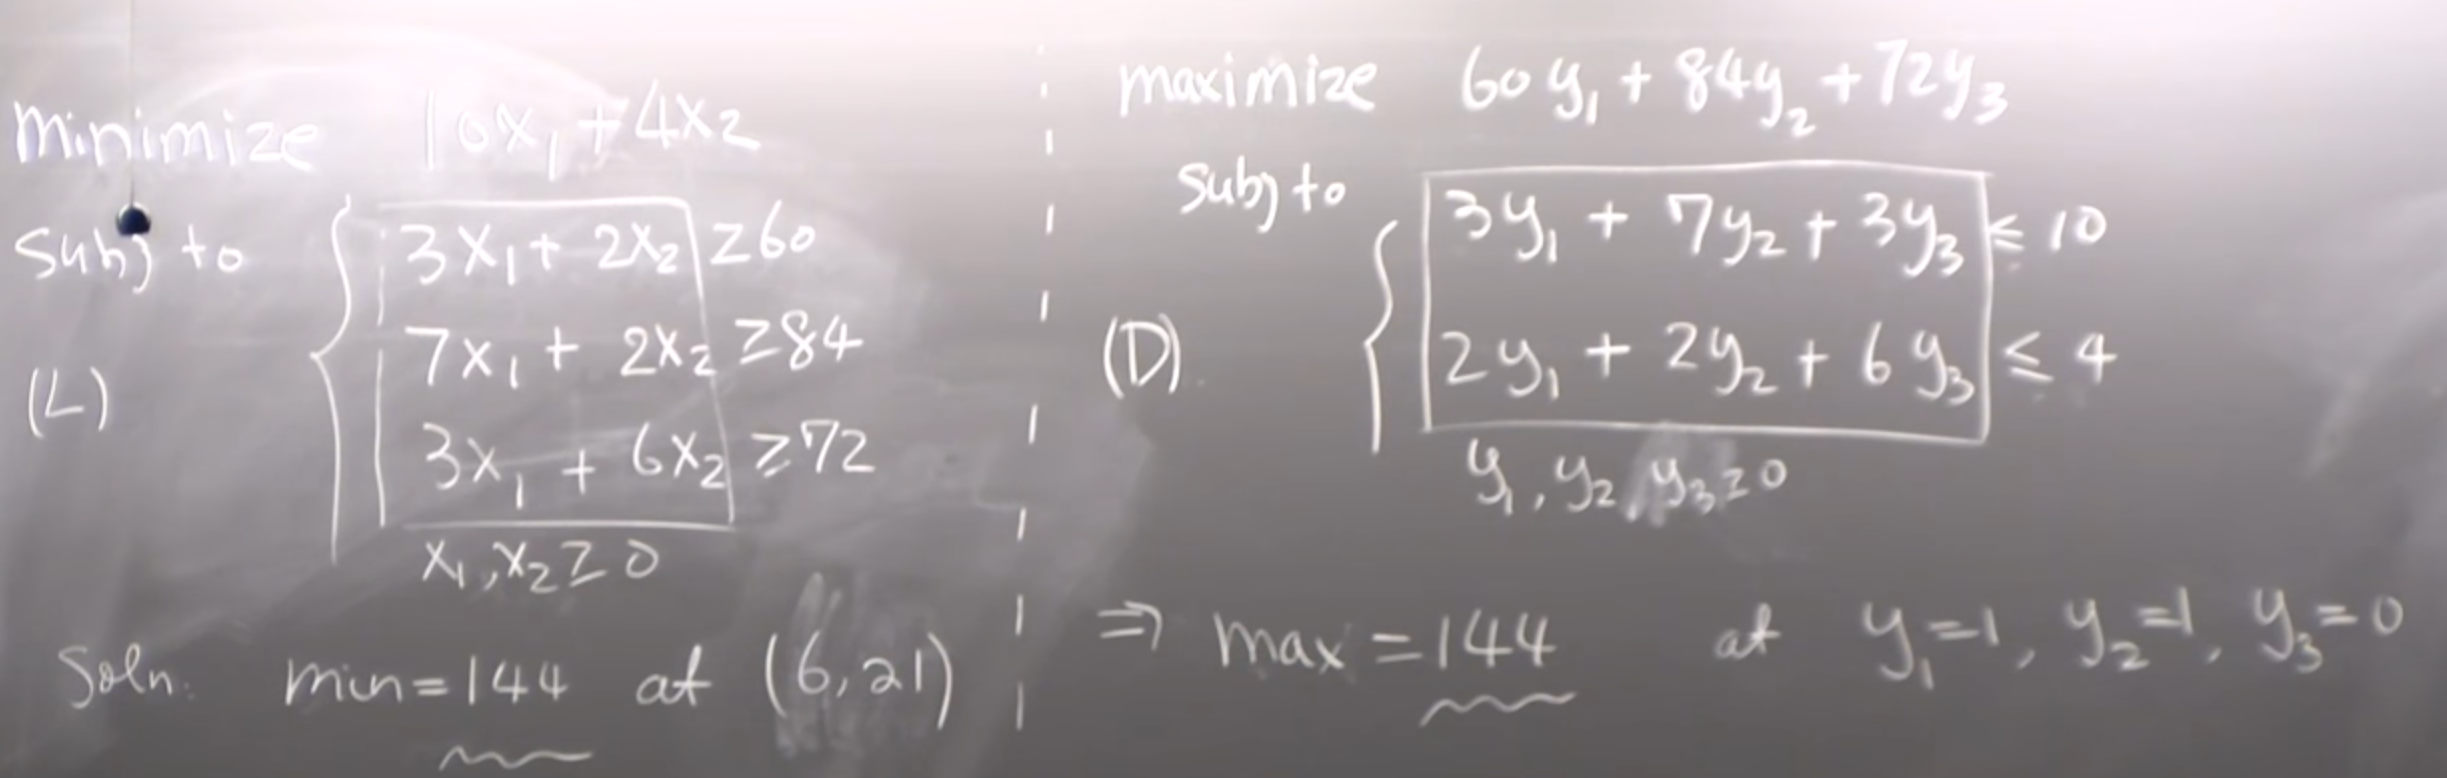 minimize 10x₁ + 4x₂
Subj to
3x₁ + 2x₂ ≥ 60
7x₁ + 2x₂ ≥ 84
(L)
3x₁ + 6x₂ ≥ 72
x₁, x₂ ≥ 0
Soln. min = 144 at (6, 21)
maximize 60y₁ + 84y₂ + 72y₃
Subj to
3y₁ + 7y₂ + 3y₃ ≤ 10
(D).
2y₁ + 2y₂ + 6y₃ ≤ 4
y₁, y₂, y₃ ≥ 0
⇒ max = 144 at y₁=1, y₂=1, y₃=0